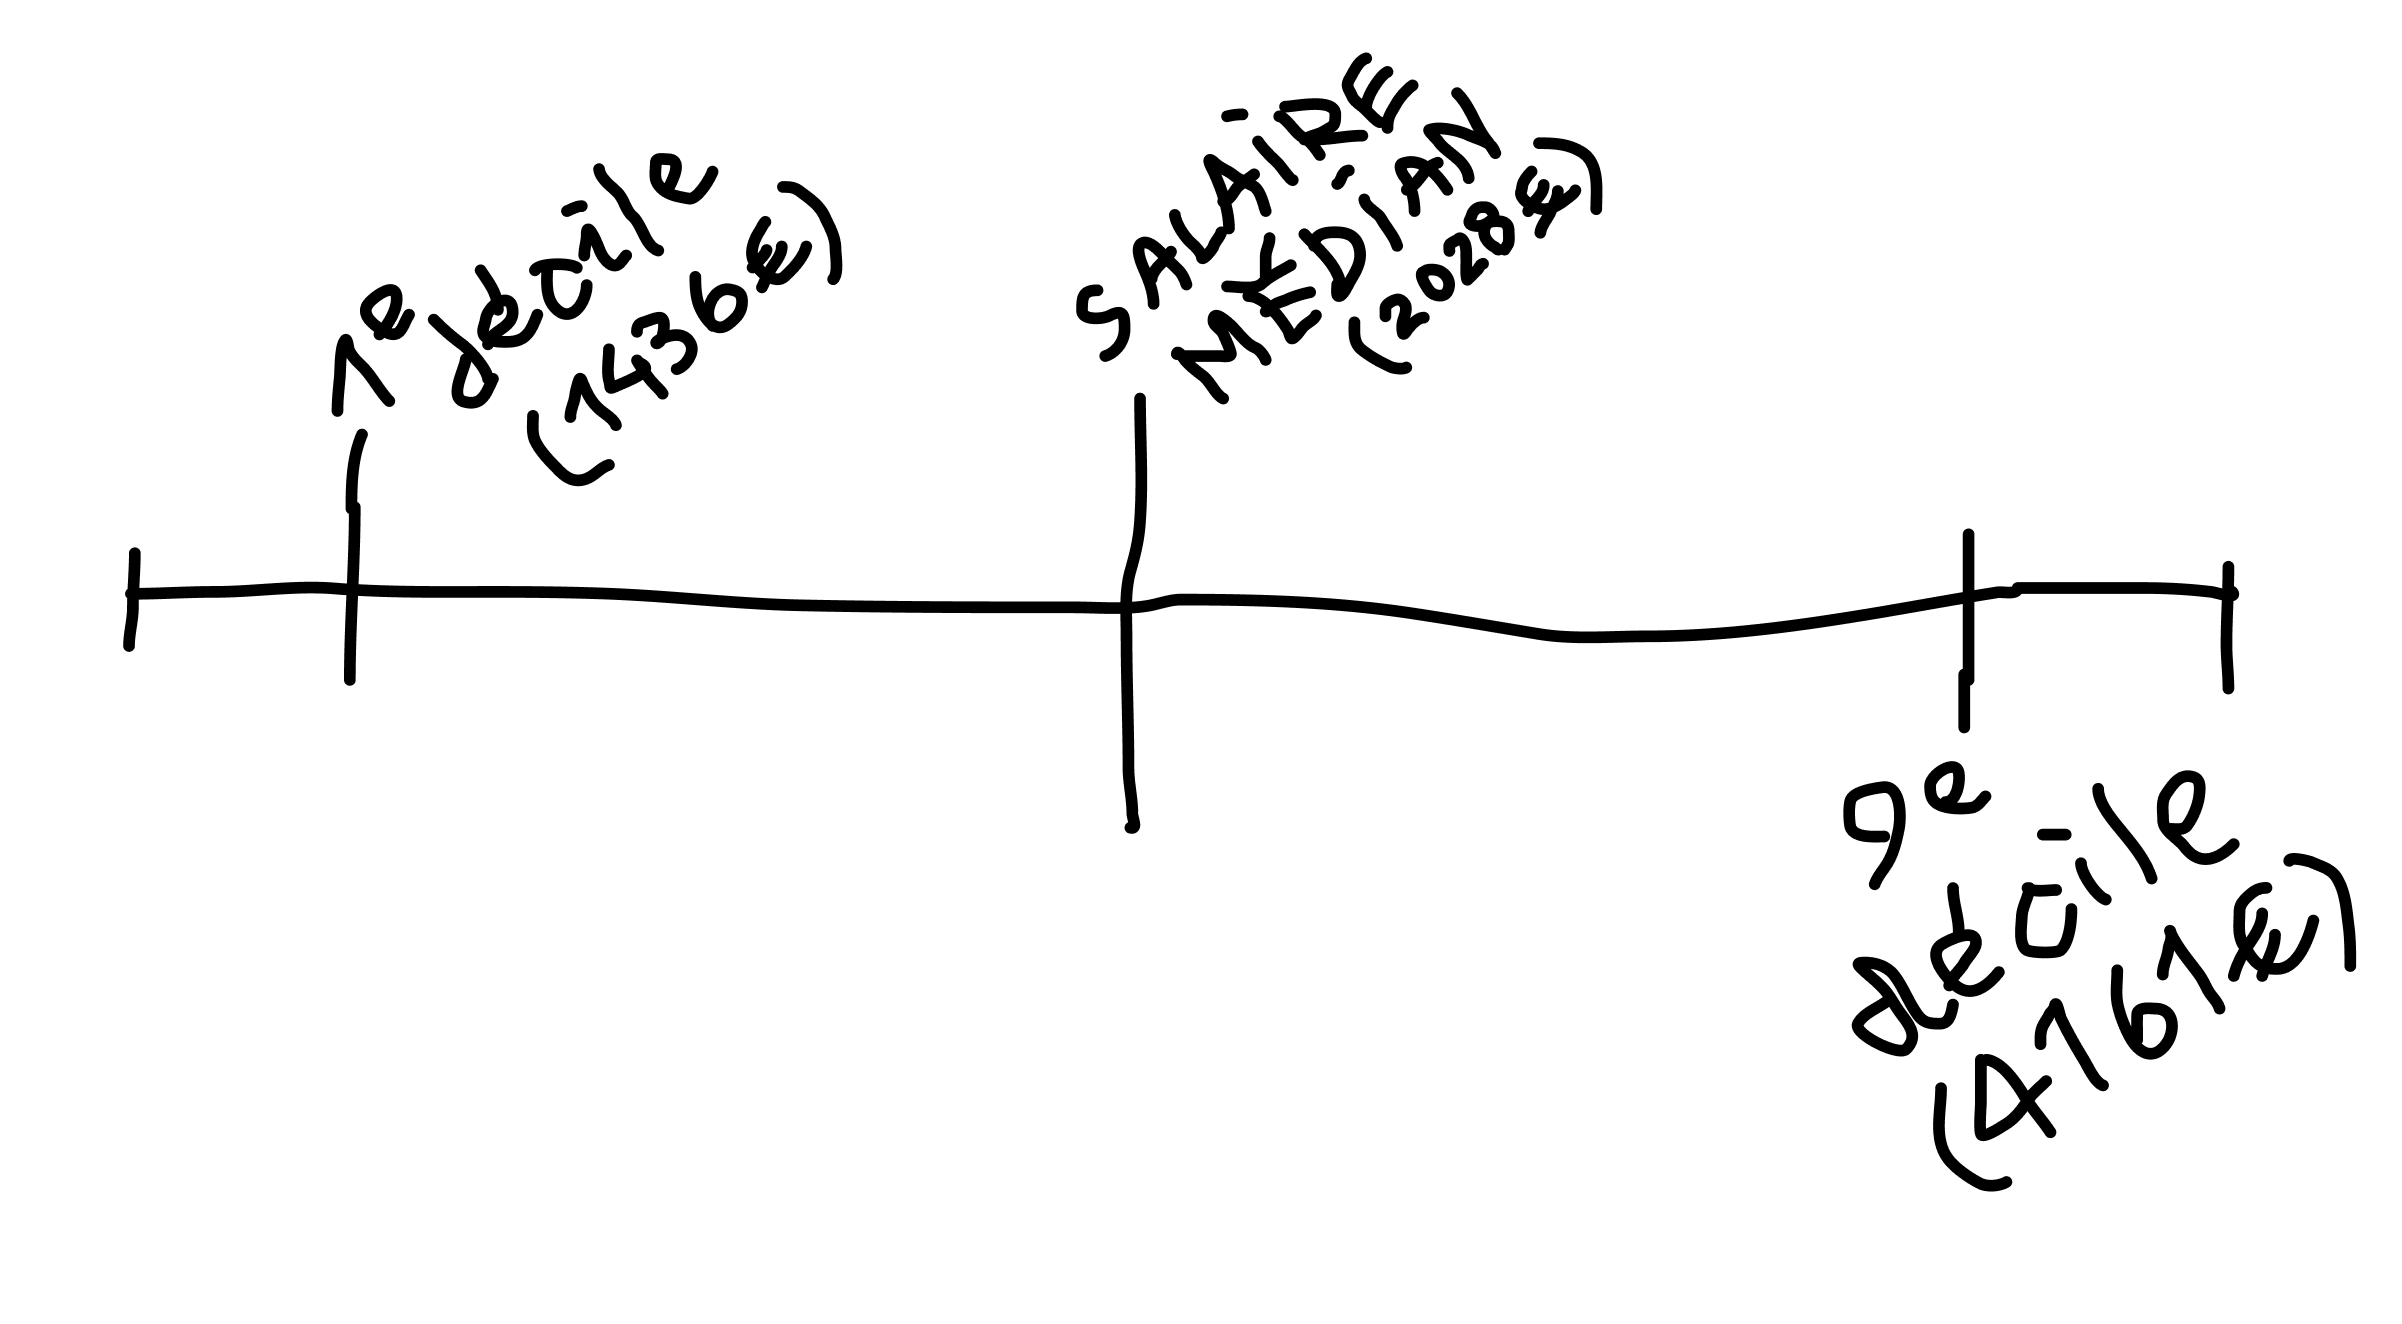 1e décile
(1436€)
SALAIRE
MÉDIAN
(2028€)
9e
décile
(4161€)